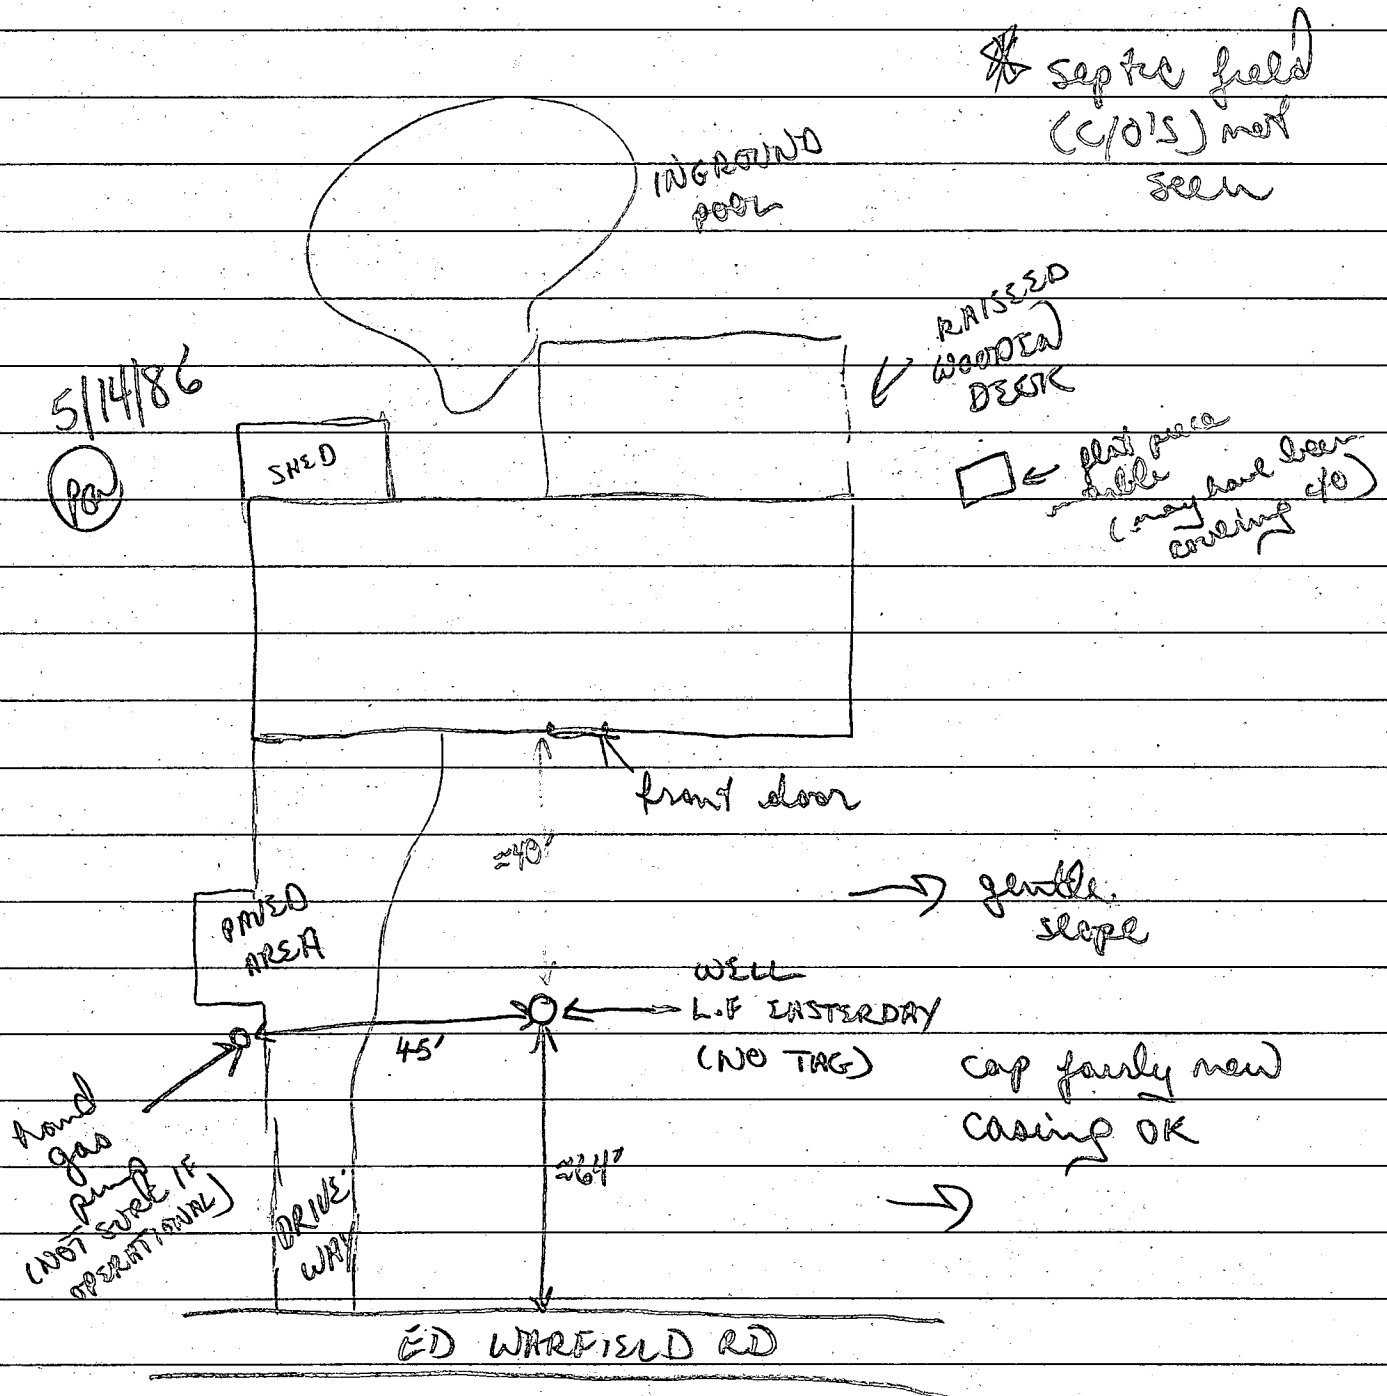 * septic field
(C/O'S) not
seen
INGROUND
POOL
RAISED
WOODEN
DECK
5/14/86
SHED
flat piece
marble
(may have been
covering c/o)
front door
≈40'
gentle
slope
PAVED
AREA
WELL
L.F EASTERDAY
(NO TAG)
45'
cap fairly new
casing OK
hand
gas
pump
(NOT SURE IF
OPERATIONAL)
≈64'
DRIVE
WAY
ED WARFIELD RD